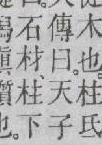 木也。柱氏
傳曰。天子
石材、柱下
質也。